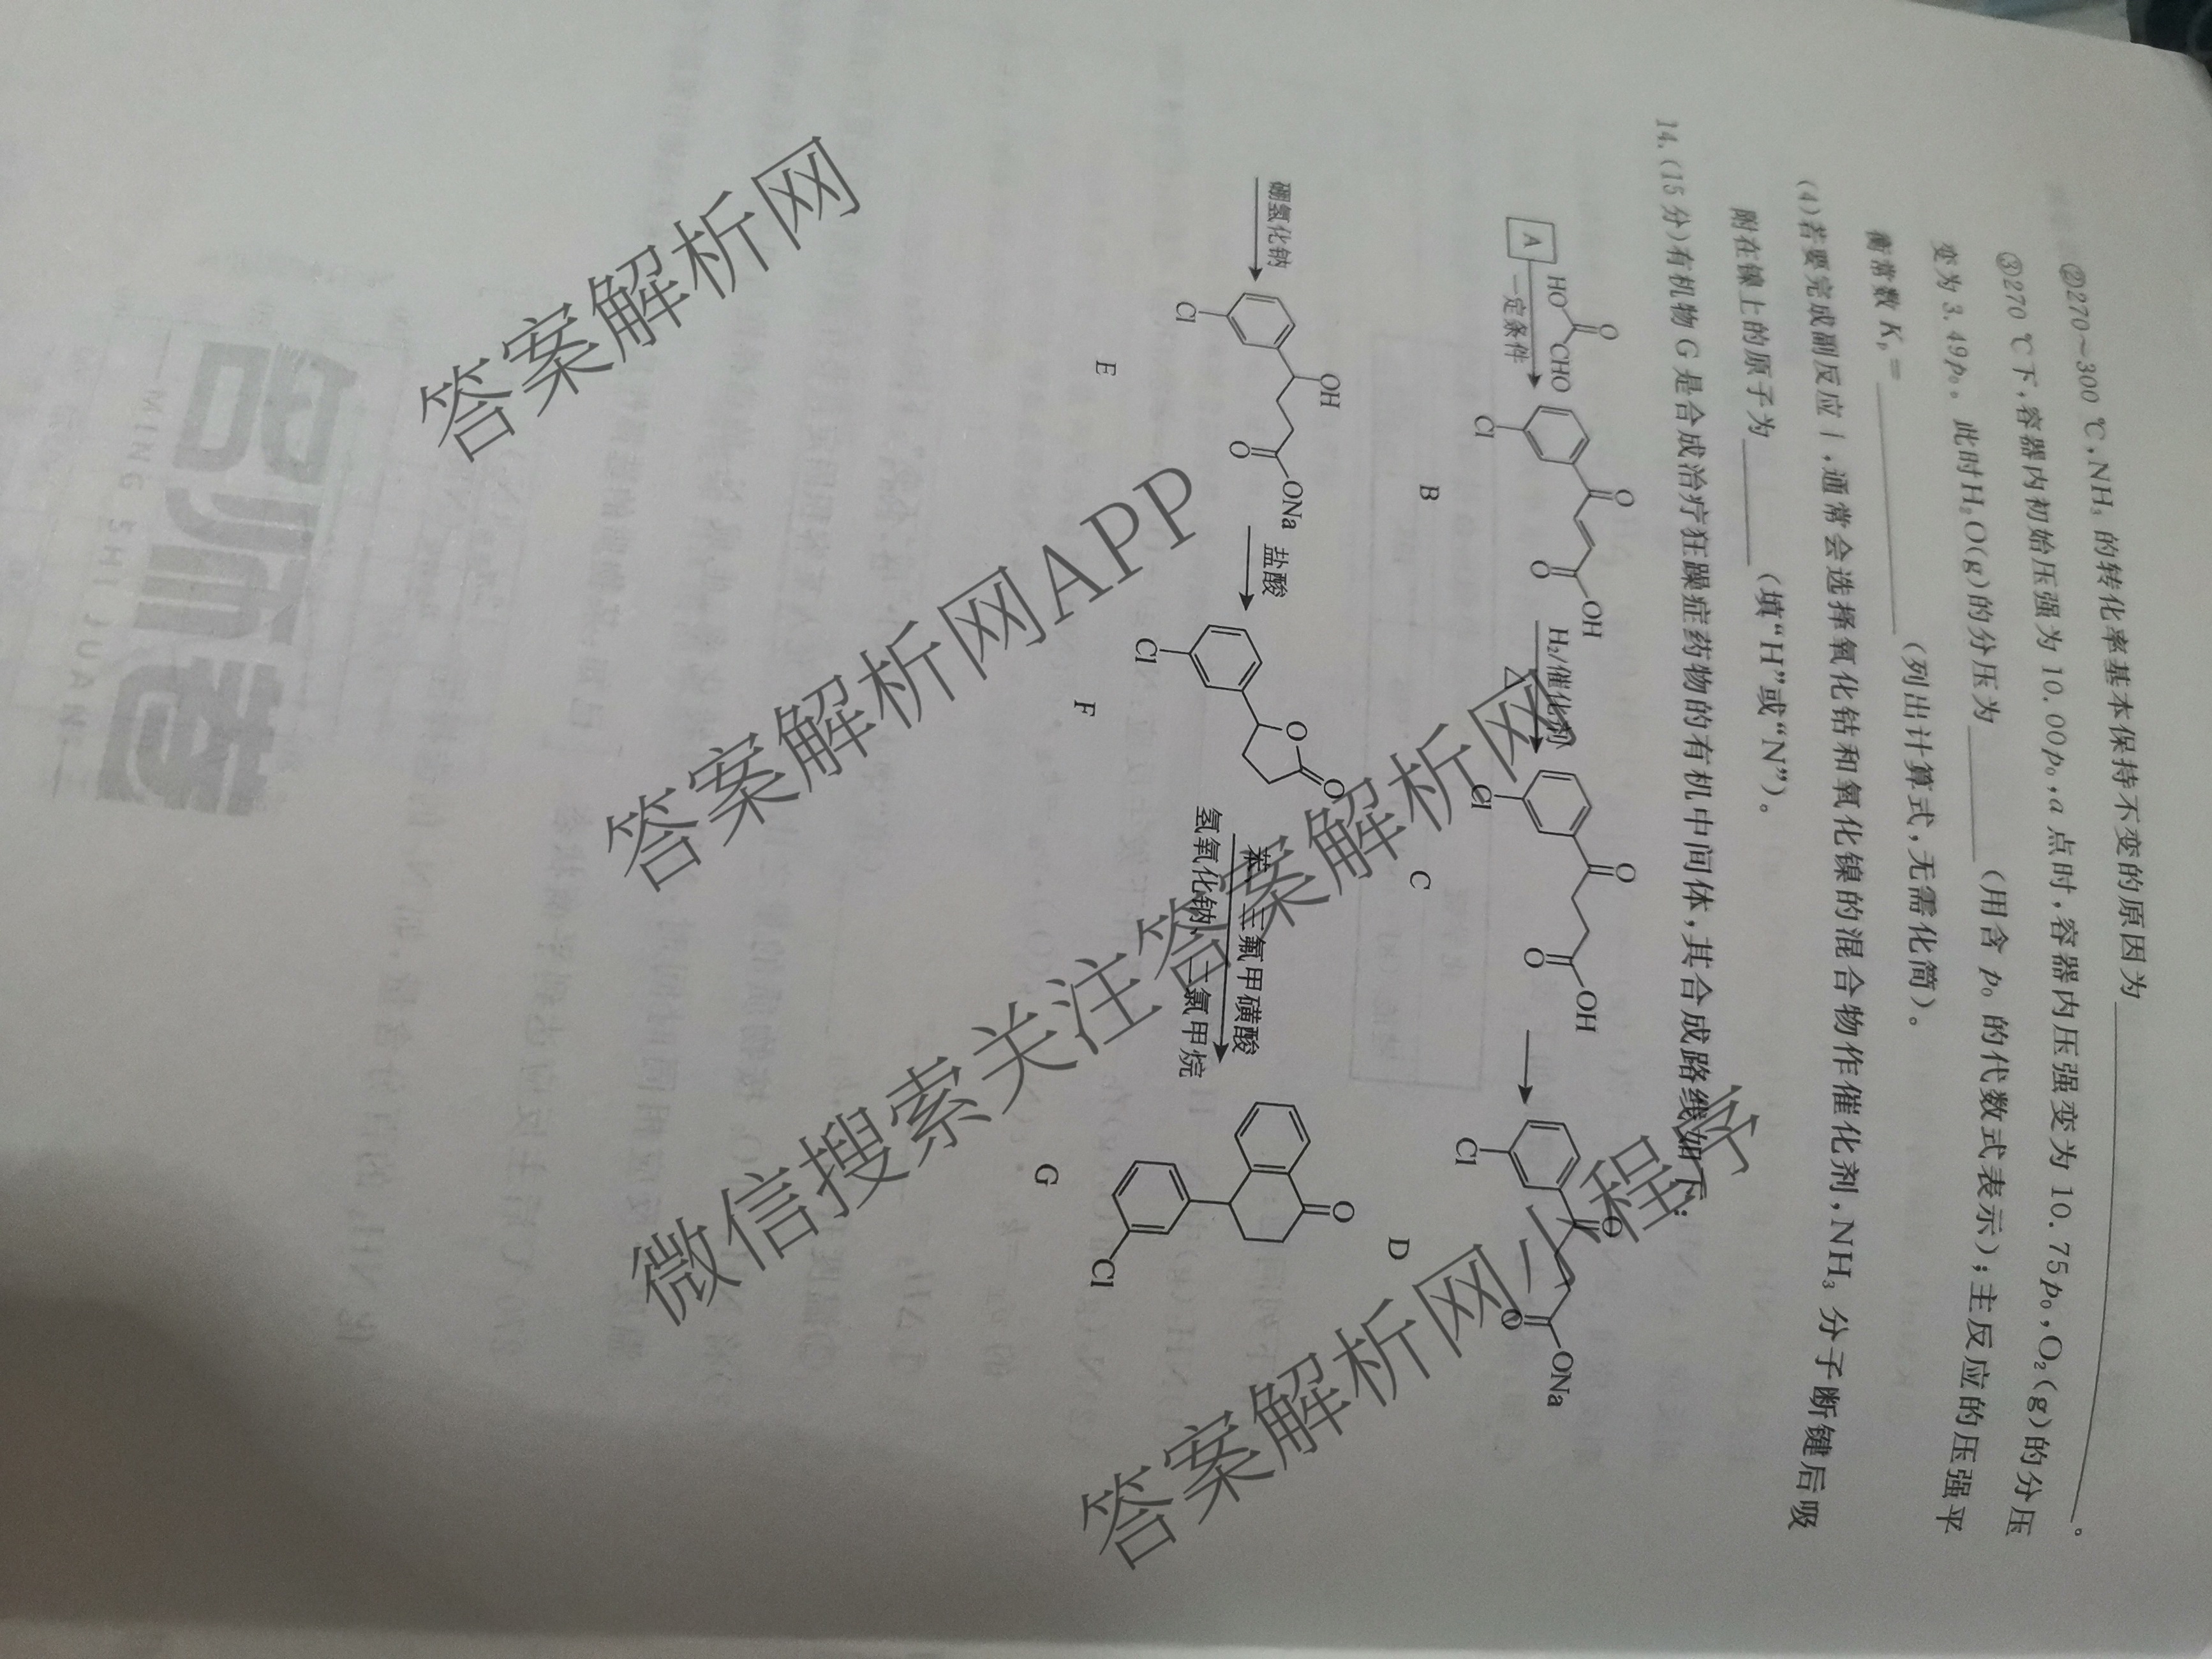 ②270～300 ℃,NH₃ 的转化率基本保持不变的原因为________。
③270 ℃下,容器内初始压强为 10.00p₀,a 点时,容器内压强变为 10.75p₀,O₂(g)的分压
变为 3.49p₀。此时H₂O(g)的分压为________(用含 p₀ 的代数式表示);主反应的压强平
衡常数 Kₚ=________(列出计算式,无需化简)。
(4)若要完成副反应Ⅰ,通常会选择氧化钴和氧化镍的混合物作催化剂,NH₃ 分子断键后吸
附在镍上的原子为________(填“H”或“N”)。
14.(15 分)有机物 G 是合成治疗狂躁症药物的有机中间体,其合成路线如下:
A
HO
O
CHO
一定条件
Cl
O
O
OH
B
H₂/催化剂
△
Cl
O
O
OH
C
Cl
O
O
ONa
D
硼氢化钠
Cl
OH
O
ONa
E
盐酸
Cl
O
O
F
苯 三氟甲磺酸
氢氧化钠、二氯甲烷
O
Cl
G
答案解析网
答案解析网APP
微信搜索关注答案解析网
答案解析网小程序
名师卷
MING SHI JUAN